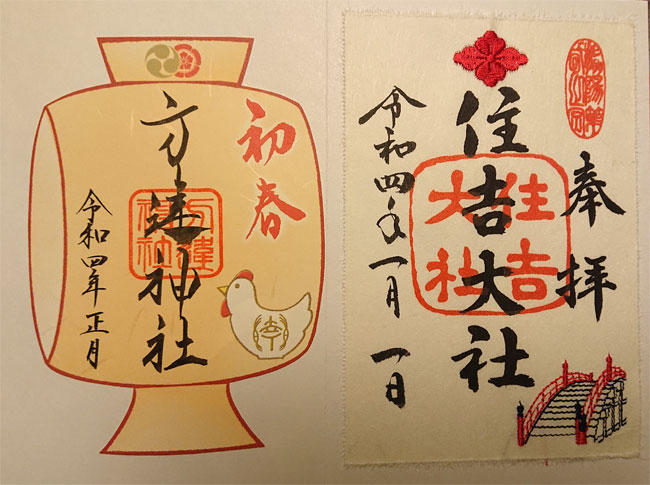 奉拝
住吉大社
住吉
大社
令和四年一月一日
初春
方違神社
方違
神社
令和四年正月